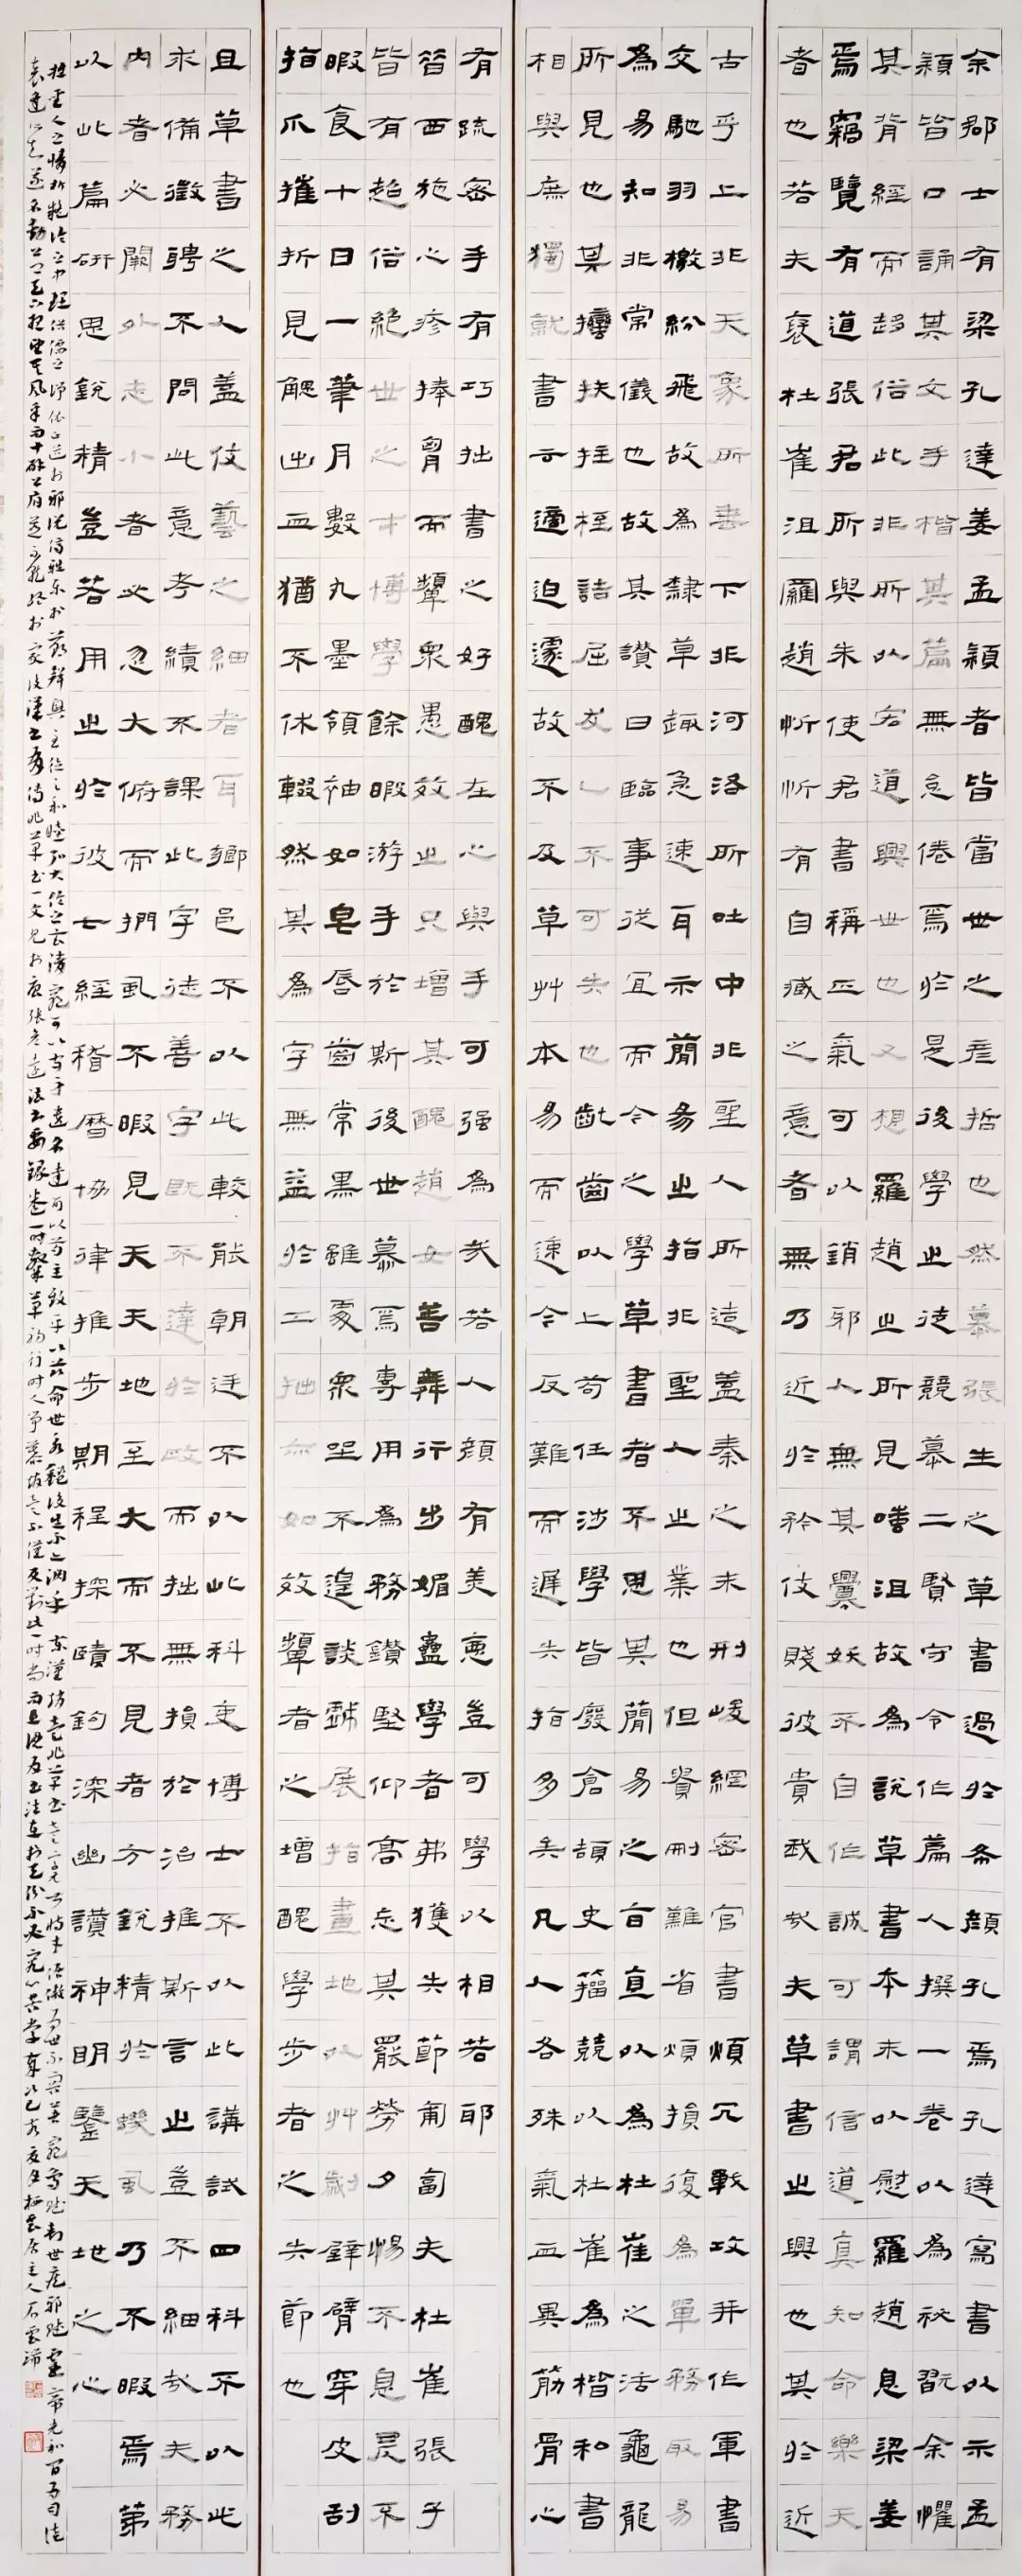 余郡士有梁孔達姜孟穎者皆當世之彥哲也然慕張生之草書過於希顏孔焉孔達寫書以示孟
穎皆口誦其文手楷其篇無怠倦焉於是後學之徒競慕二賢守令作篇人撰一卷以為秘翫余懼
其背經而趍俗此非所以宏道興世也又想羅趙之所見嗤沮故為說草書本末以慰羅趙息梁姜
焉竊覽有道張君所與朱使君書稱正氣可以銷邪人無其釁妖不自作誠可謂信道真知命樂天
者也若夫褒杜崔沮羅趙忻忻有自臧之意者無乃近於矜伎賤彼貴我哉夫草書之興也其於近
古乎上非天象所垂下非河洛所吐中非聖人所造蓋秦之末刑峻網密官書煩冗戰攻并作軍書
交馳羽檄紛飛故為隸草趣急速耳示簡易之指非聖人之業也但貴刪難省煩損復為單務取易
為易知非常儀也故其讚曰臨事從宜而今之學草書者不思其簡易之旨直以為杜崔之法龜龍
所見也其扶拄桎詰屈犮乙不可失也齔齒以上苟任涉學皆廢倉頡史籀競以杜崔為楷和書
相與庶獨就書云適迫遽故不及草艸本易而速今反難而遲失指多矣凡人各殊氣血異筋骨心
有疏密手有巧拙書之好醜在心與手可强為哉若人顏有美惡豈可學以相若耶
昔西施心疹捧胷而顰眾愚效之只增其醜趙女善舞行步媚蠱學者弗獲失節匍匐夫杜崔張子
皆有超俗絕世之才博學餘暇游手於斯後世慕焉專用為務鑽堅仰高忘其罷勞夕惕不息昃不
暇食十日一筆月數丸墨領袖如皂唇齒常黑雖處眾坐不遑談戲展指畫地以艸劌壁臂穿皮刮
指爪摧折見䚡出血猶不休輟然其為字無益於工拙亦如效顰者之增醜學步者之失節也
且草書之人蓋伎藝之細者耳鄉邑不以此較能朝廷不以此科吏博士不以此講試四科不以此
求備徵聘不問此意考績不課此字徒善字既不達於政而拙無損於治推斯言之豈不細哉夫務
內者必闕外志小者必忽大俯而捫虱不暇見天天地至大而不見者方銳精於蟣虱乃不暇焉第
以此篇研思銳精豈若用之於彼七經稽曆協律推步期程探賾鉤深幽讚神明鑒天地之心
推聖人之情析疑論之中理俗儒之諍依正道於邪說儕雅樂於鄭聲興至德之和睦弘大倫之玄清窮可以守身遺名達可以尊主致平以茲命世永鑒後生不亦淵乎 東漢